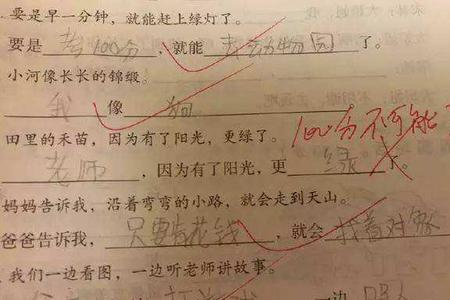 要是早一分钟，就能赶上绿灯了。
要是考100分，就能去动物园了。
小河像长长的锦缎。
我像狗
100分不可能
田里的禾苗，因为有了阳光，更绿了。
老师，因为有了阳光，更绿了。
妈妈告诉我，沿着弯弯的小路，就会走到天山。
爸爸告诉我，只要有花钱，就会找着对象
我们一边看图，一边听老师讲故事。
一边